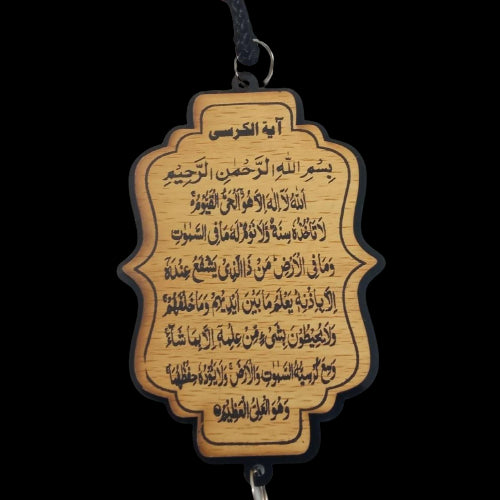 آية الكرسى
بِسْمِ اللهِ الرَّحْمٰنِ الرَّحِيْمِ
اَللهُ لَا اِلٰهَ اِلَّا هُوَ اَلْحَیُّ الْقَیُّوْمُ
لَا تَاْخُذُهٗ سِنَةٌ وَّلَا نَوْمٌ لَهٗ مَا فِی السَّمٰوٰتِ
وَمَا فِی الْاَرْضِ مَنْ ذَا الَّذِیْ یَشْفَعُ عِنْدَهٗ
اِلَّا بِاِذْنِهٖ یَعْلَمُ مَا بَیْنَ اَیْدِیْهِمْ وَمَا خَلْفَهُمْ
وَلَا یُحِیْطُوْنَ بِشَیْءٍ مِّنْ عِلْمِهٖ اِلَّا بِمَا شَآءَ
وَسِعَ كُرْسِیُّهُ السَّمٰوٰتِ وَالْاَرْضَ وَلَا یَئُوْدُهٗ حِفْظُهُمَا
وَهُوَ الْعَلِیُّ الْعَظِیْمُ